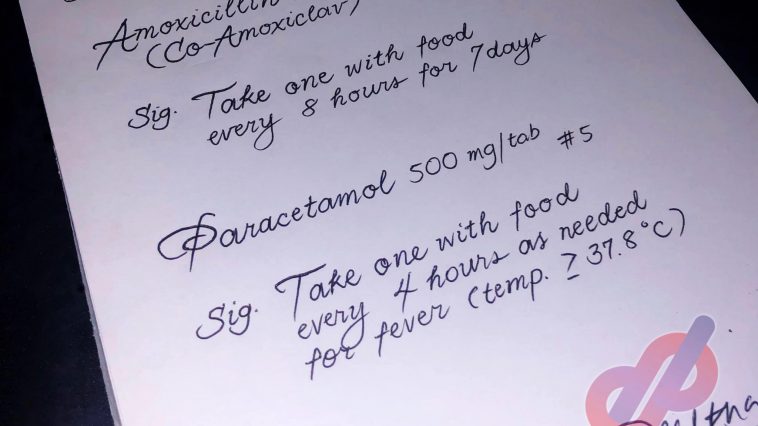 Amoxicillin
(Co-Amoxiclav)
Sig. Take one with food
every 8 hours for 7 days
Paracetamol 500 mg/tab #5
Sig. Take one with food
every 4 hours as needed
for fever (temp. ≥ 37.8°C)